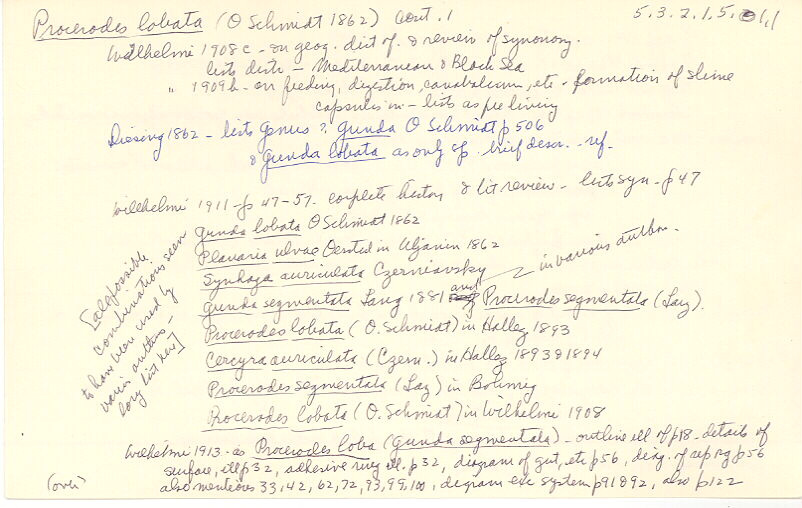 Procerodes lobata (O Schmidt 1862) cont. 1
5.3.2.1.5. 1.1
Wilhelmi 1908c - on geog. dist of. & review of synonomy.
lists distr - Mediterranean & Black Sea
" 1909b - on feeding, digestion, canabalism, etc - formation of slime
capsules in - lists as free living
Diesing 1862 - lists Genus ? Gunda O Schmidt p 506
& Gunda lobata as only sp. brief descr. - ref.
Wilhelmi 1911 - p 47-57. complete history & lit review - lists syn - p 47
Gunda lobata O Schmidt 1862
Planaria ulvae Oersted in Uljanin 1862
Synhaga auriculata Czerniavsky
Gunda segmentata Lang 1881 and Procerodes segmentata (Lang). in various author.
Procerodes lobata (O. Schmidt) in Hallez 1893
Cercyra auriculata (Czern.) in Hallez 1893 & 1894
Procerodes segmentata (Lang) in Bohmig
Procerodes lobata (O. Schmidt) in Wilhelmi 1908
[all possible
combinations seem
to have been used by
various authors -
long list here]
Wilhelmi 1913 - as Procerodes loba (Gunda segmentata) - outline ill of p18 - details of
surface, ill p 32, adhesive ring ill. p 32, diagram of gut, etc p 56, diag. of rep org p 56
also mentions 33, 42, 62, 72, 93, 99, 100, diagram exc system p 91 & 92, also p 122
(over)